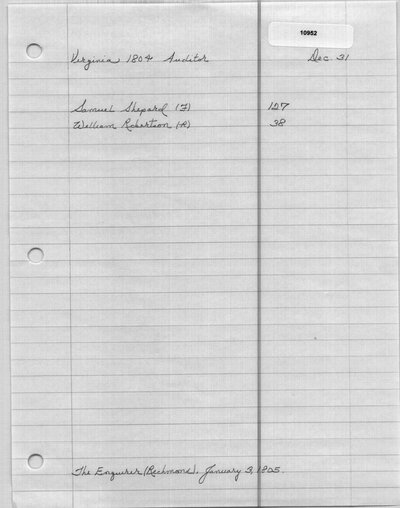 10952
Virginia 1804 Auditor Dec 31
Samuel Shepard (F) 127
William Robertson (R) 38
The Enquirer (Richmond), January 3, 1805.